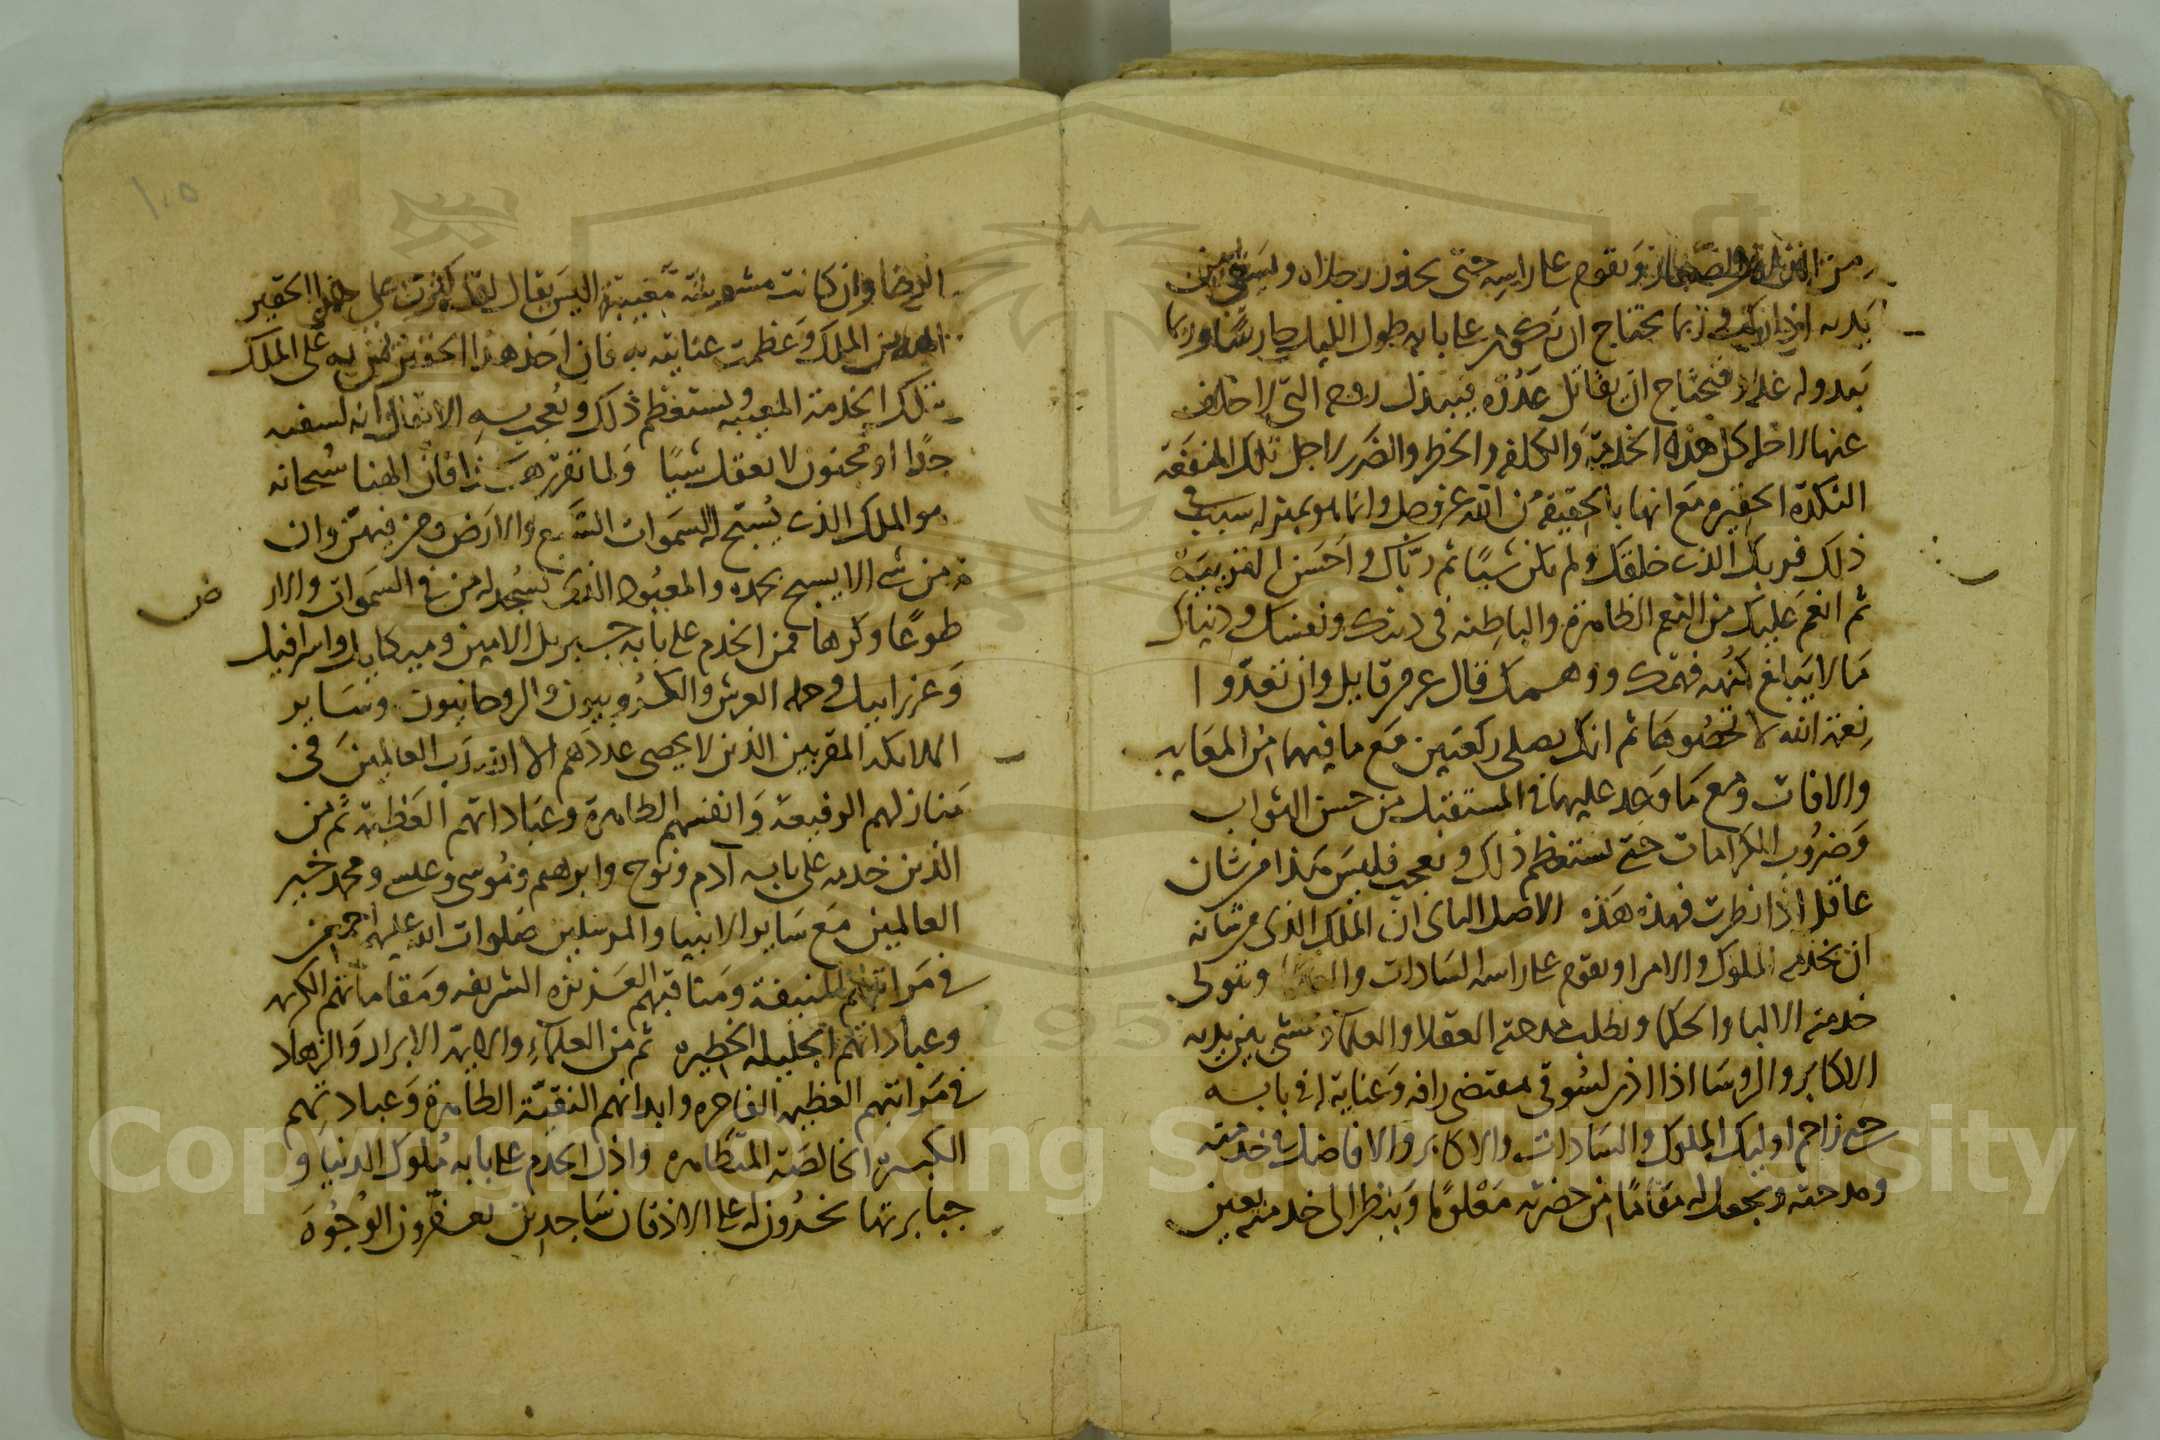 من الذلة والصغار ويقوم على راسه حتى يخدر رجلاه ويسعى بين
يديه اذا ركب وربما يحتاج ان يكون على بابه طول الليل حارسا وربما
يبدو له عدو فيحتاج ان يقاتل عدوه فيبذل روحه التي لا خلف
عنها لاجله كل هذه الخدمة والكلفه والخطر والضرر لاجل تلك المنفعة
النكدة الحقيرة مع انها بالحقيقة من الله عز وجل وانما هو بمنزلة سبب في
ذلك فربك الذي خلقك ولم تكن شيئا ثم رباك واحسن التربية
ثم انعم عليك من النعم الظاهرة والباطنه في دينك ونفسك ودنياك
ما لا يبلغ كنهه فهمك ووهمك قال عز من قايل وان تعدوا
نعمة الله لا تحصوها ثم انك تصلي ركعتين مع ما فيهما من المعايب
والافات ومع ما وعد عليهما في المستقبل من حسن الثواب
وضروب الكرامات حتى تستعظم ذلك وتعجب فليس هذا من شان
عاقل اذا نظرت فهذه هذه الاصل الثاني ان الملك الذي من شانه
ان يخدمه الملوك والامرا ويقوم على راسه السادات وال ويتولى
خدمته الالبا والحكما ويطلب مدحته العقلا والعلماء ويمشي بين يديه
الاكابر والروسا اذا اذن لسوقي بمقتضى رافة وعناية له في بابه
حتى زاحم اوليك الملوك والسادات والاكابر والافاضل في خدمته
ومدحته ويجعل له مقاما من حضرته معلوما وينظر الى خدمته بعين
١٠٥
الرضا وان كانت مشوبة معيبة اليس يقال لقد كبرت على هذا الحقير
المنة من الملك وعظمت عنايته به فان اخذ هذا الحقير يمن به على الملك
بتلك الخدمة المعيبه ويستعظم ذلك ويعجب به الا يقال انه لسفيه
جدا او مجنون لا يعقل شييا ولما تقرر هذا فان الهنا سبحانه
هو الملك الذي يسبح له السموات السبع والارض ومن فيهن وان
من شي الا يسبح بحمده والمعبود الذي يسجد له من في السموات والار
ض
طوعا وكرها فمن الخدم على بابه جبريل الامين وميكاييل واسرافيل
وعزراييل وحملة العرش والكروبيون والروحانيون وساير
الملايكة المقربين الذين لا يحصى عددهم الا الله رب العالمين في
منازلهم الرفيعة وانفسهم الطاهرة وعباداتهم العظيمة ثم من
الذين خدمه على بابه آدم ونوح وابرهيم وموسى وعيسى ومحمد خير
العالمين مع ساير الانبيا والمرسلين صلوات الله عليهم اجمعين
في مراتبهم المنيفة ومناقبهم العزيزة الشريفه ومقاماتهم الكريمه
وعباداتهم الجليلة الخطيره ثم من العلماء والايمة الابرار والزهاد
في مراتبهم العظيمة الفاخره وابدانهم النقية الطاهرة وعبادتهم
الكبيرة الخالصة المتظاهره واذل الخدم على بابه ملوك الدنيا و
جبابرتها يخرون له على الاذقان ساجدين يعفرون الوجوه